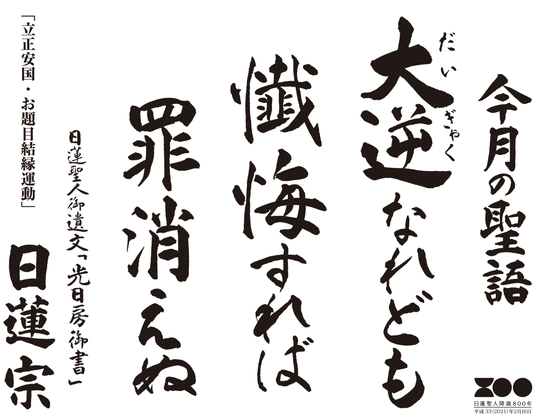 今月の聖語
大逆なれども
だいぎゃく
懺悔すれば
罪消えぬ
日蓮聖人御遺文「光日房御書」
「立正安国・お題目結縁運動」
日蓮宗
800
日蓮聖人降誕800年
平成33(2021)年2月16日